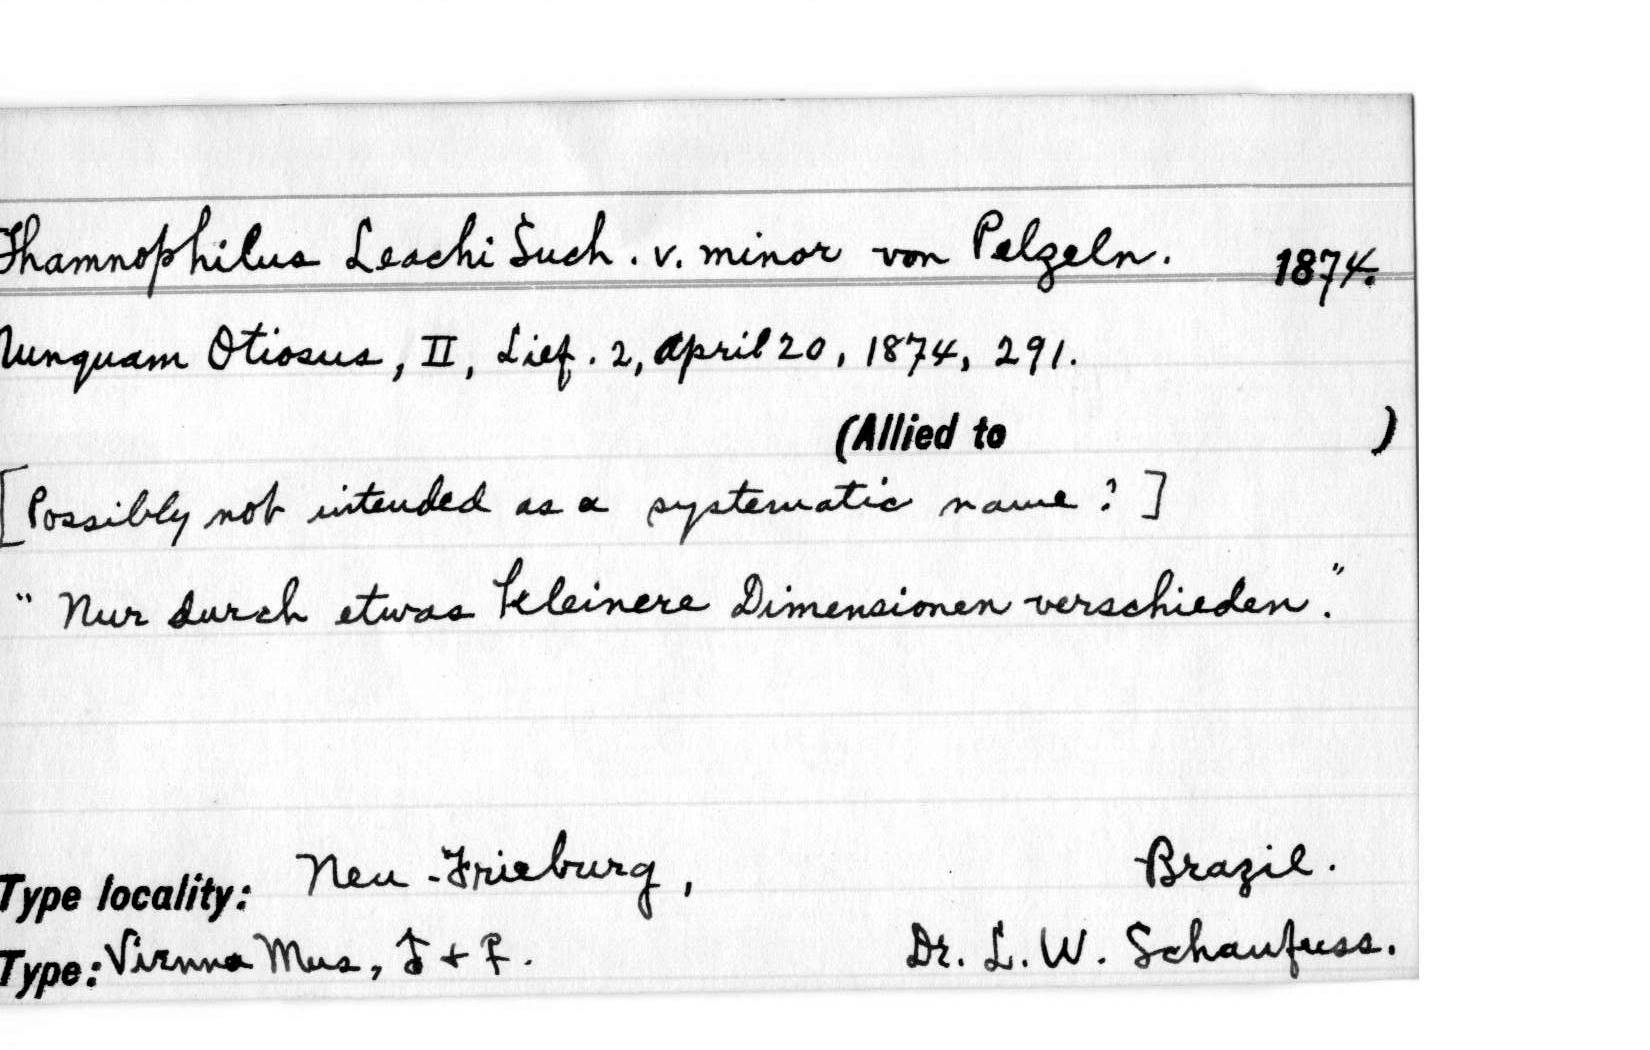 Thamnophilus Leachi Such. v. minor von Pelzeln. 1874.
Nunquam Otiosus, II, Lief. 2, April 20, 1874, 291.
(Allied to )
[Possibly not intended as a systematic name?]
"Nur durch etwas kleinere Dimensionen verschieden."
Type locality: Neu-Frieburg, Brazil.
Type: Vienna Mus, ♂ + ♀. Dr. L. W. Schaufuss.